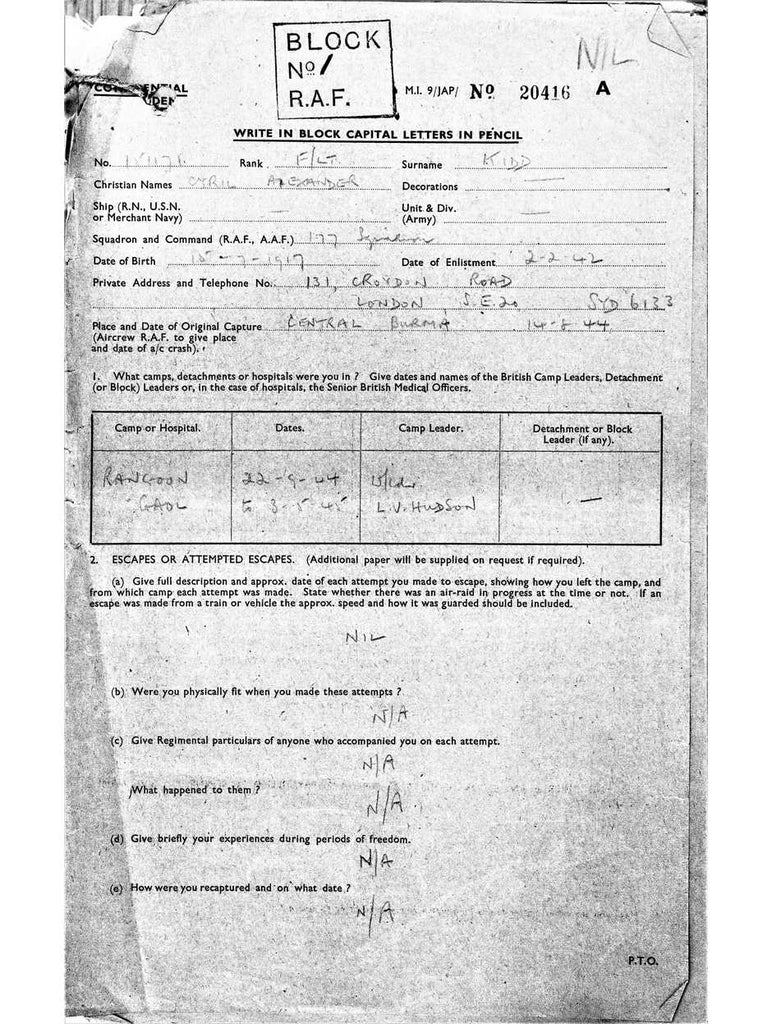 BLOCK
Nº 1
R.A.F.
NIL
M.I. 9/JAP/ Nº 20416 A
WRITE IN BLOCK CAPITAL LETTERS IN PENCIL
No. 151171. Rank F/LT. Surname KIDD
Christian Names CYRIL ALEXANDER Decorations —
Ship (R.N., U.S.N. Unit & Div.
or Merchant Navy) — (Army) —
Squadron and Command (R.A.F., A.A.F.) 177 Squadron
Date of Birth 15-7-1917 Date of Enlistment 2-2-42
Private Address and Telephone No. 131, CROYDON ROAD
LONDON S.E.20 SYD 6133
Place and Date of Original Capture CENTRAL BURMA 14-8-44
(Aircrew R.A.F. to give place
and date of a/c crash).
1. What camps, detachments or hospitals were you in ? Give dates and names of the British Camp Leaders, Detachment
(or Block) Leaders or, in the case of hospitals, the Senior British Medical Officers.
Camp or Hospital. Dates. Camp Leader. Detachment or Block
Leader (if any).
RANGOON 22-9-44 W/Cdr.
GAOL to 3-5-45 L.V. HUDSON —
2. ESCAPES OR ATTEMPTED ESCAPES. (Additional paper will be supplied on request if required).
(a) Give full description and approx. date of each attempt you made to escape, showing how you left the camp, and
from which camp each attempt was made. State whether there was an air-raid in progress at the time or not. If an
escape was made from a train or vehicle the approx. speed and how it was guarded should be included.
NIL
(b) Were you physically fit when you made these attempts ?
N/A
(c) Give Regimental particulars of anyone who accompanied you on each attempt.
N/A
What happened to them ?
N/A
(d) Give briefly your experiences during periods of freedom.
N/A
(e) How were you recaptured and on what date ?
N/A
P.T.O.